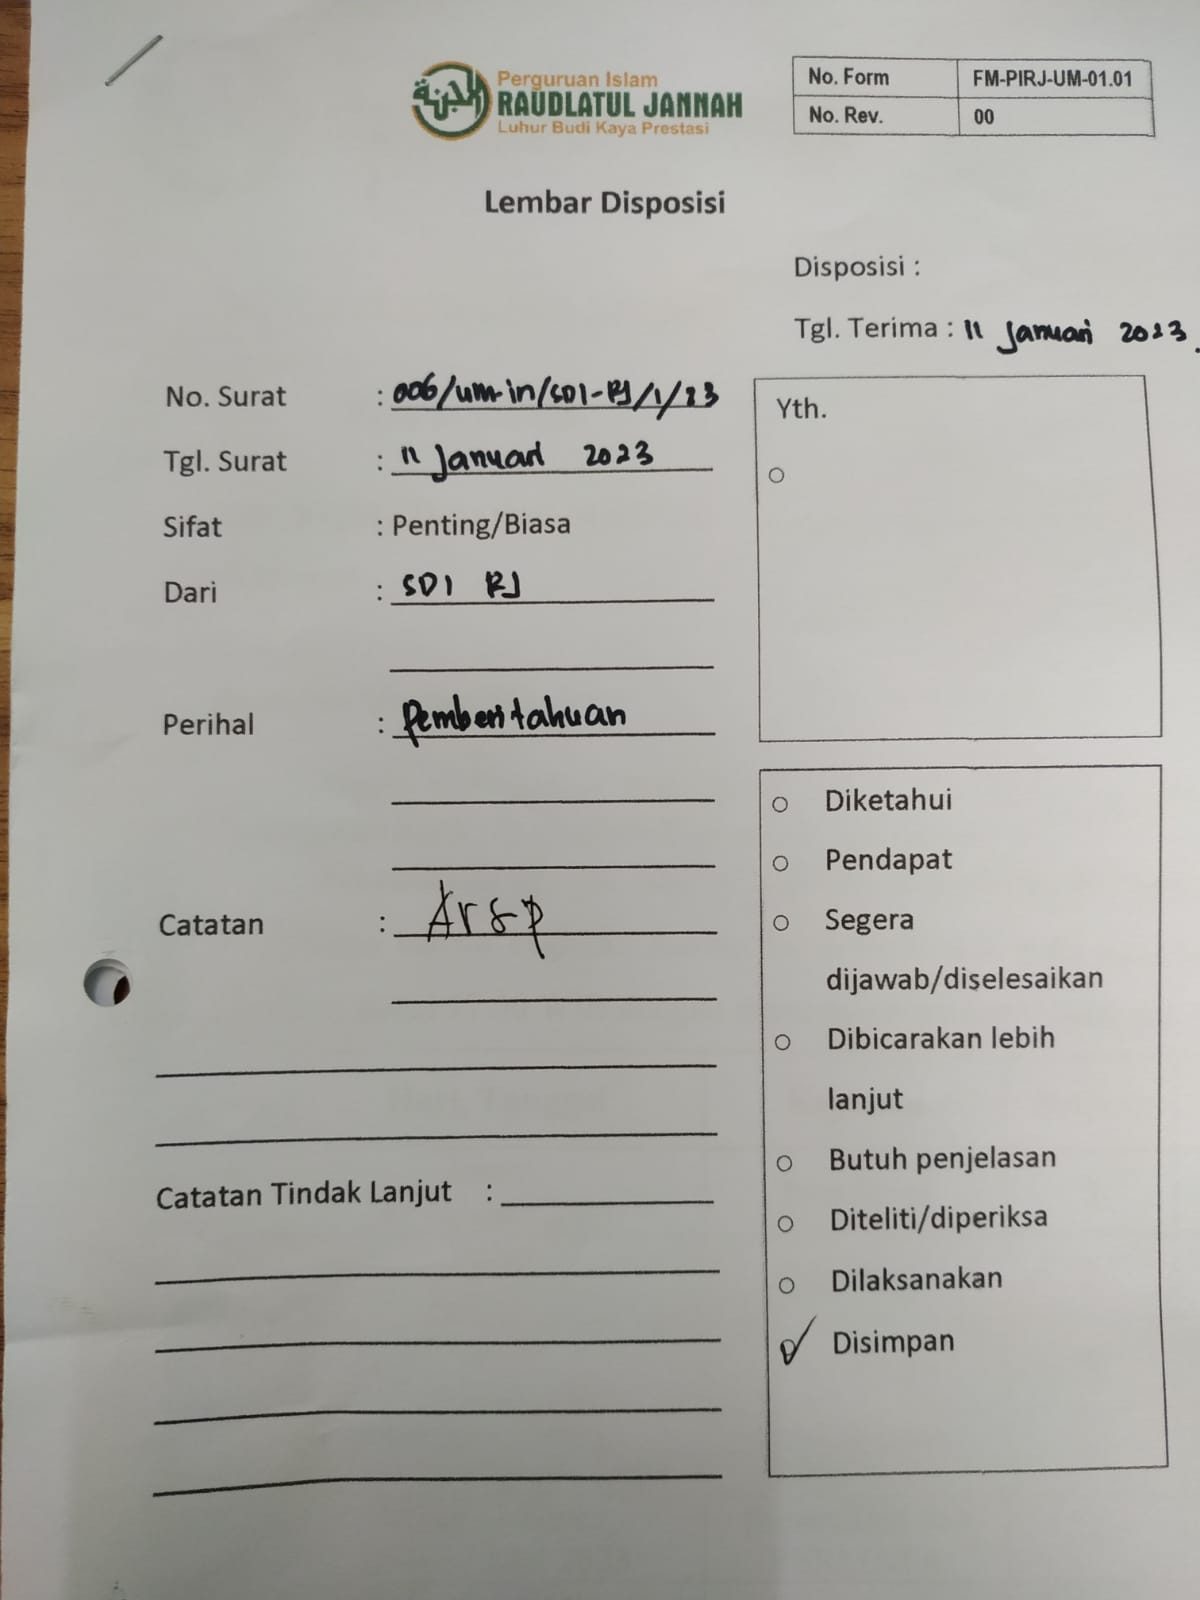 الجنة
Perguruan Islam
RAUDLATUL JANNAH
Luhur Budi Kaya Prestasi
No. Form FM-PIRJ-UM-01.01
No. Rev. 00
Lembar Disposisi
Disposisi :
Tgl. Terima : 11 Januari 2023.
No. Surat : 006/um-in/SDI-RJ/1/23
Tgl. Surat : 11 Januari 2023
Sifat : Penting/Biasa
Dari : SDI RJ
Perihal : Pemberitahuan
Catatan : Arsip
Catatan Tindak Lanjut :
Yth.
Diketahui
Pendapat
Segera
dijawab/diselesaikan
Dibicarakan lebih
lanjut
Butuh penjelasan
Diteliti/diperiksa
Dilaksanakan
Disimpan